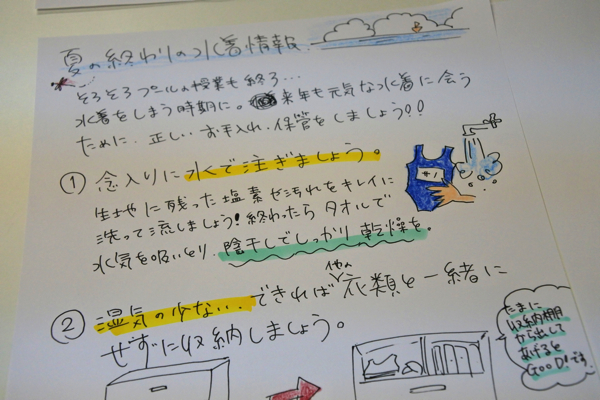 夏の終わりの水着情報
そろそろプールの授業も終り…
水着をしまう時期に。来年も元気な水着に会う
ために、正しいお手入れ、保管をしましょう!!
① 念入りに水で注ぎましょう。
生地に残った塩素や汚れをキレイに
洗って流しましょう!終わったらタオルで
水気を吸いとり、陰干しでしっかり乾燥を。
② 湿気の少ない...できれば他の衣類と一緒に
せずに収納しましょう。
たまに
収納棚
から出して
あげると
GOOD!です。